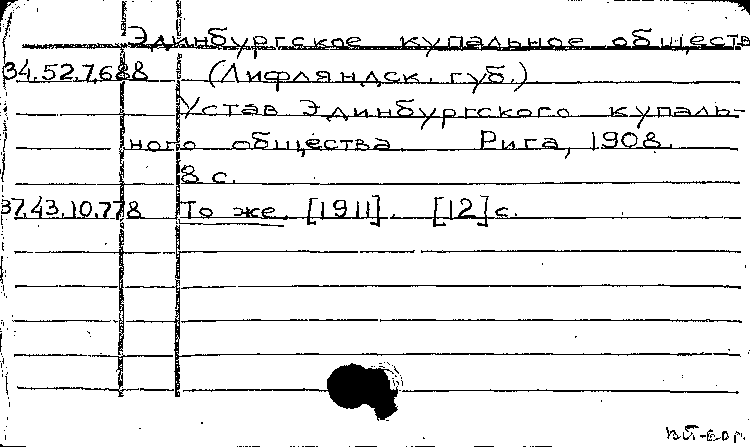 Эдинбургское купальное обществ
34.52.7.688 (Лифляндск. губ.)
Устав Эдинбургского купаль-
ного общества Рига, 1908.
8 с.
37.43.10.778 То же. [1911]. [12] с.